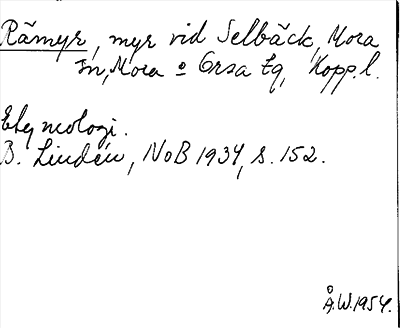 Råmyr, myr vid Selbäck, Mora
sn, Mora o Orsa tg, Kopp.l.
Etymologi.
B. Lindén, NoB 1934, s. 152.
Å.W.1954.